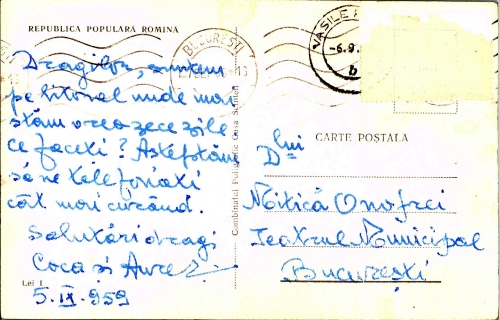 REPUBLICA POPULARA ROMINA
BUCUREȘTI
VASILE
-6.9.
b
Dragilor, suntem
pe litoral unde mai
stăm vreo zece zile
ce faceți? Așteptăm
să ne telefonați
cât mai curând.
Salutări dragi
Coca și Aurel
5.IX.959
Lei 1
Combinatul Poligrafic Casa Scînteii
CARTE POȘTALA
Dlui
Mitică Onofrei
Teatrul Municipal
București